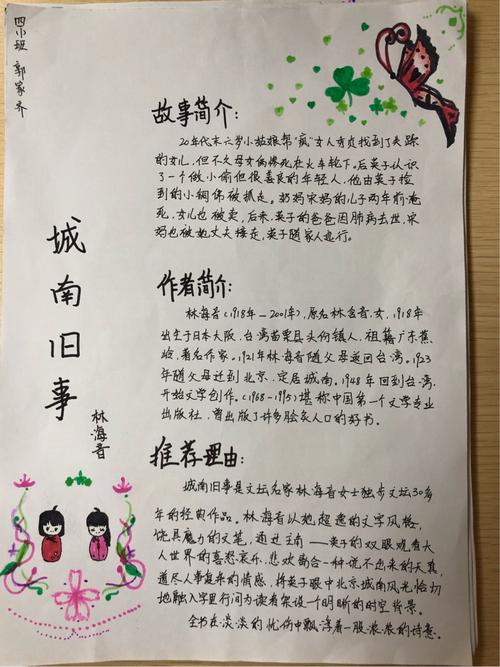 四小班 郭家齐
城南旧事
林海音
故事简介:
20年代末六岁小姑娘帮“疯”女人秀贞找到了失踪
的女儿，但不久母女俩惨死在火车轮下。后英子认识
了一个做小偷但很善良的年轻人，他由英子捡
到的小铜佛被抓走。奶妈宋妈的儿子两年前淹
死，女儿也被卖，后来，英子的爸爸因肺病去世，宋
妈也被她丈夫接走，英子随家人远行。
作者简介:
林海音(1918年-2001年),原名林含音,女,1918年
出生于日本大阪，台湾苗栗县头份镇人，祖籍广东蕉
岭，著名作家。1921年林海音随父母返回台湾。1923
年随父母迁到北京，定居城南。1948年回到台湾，
开始文学创作。(1968-1995)堪称中国第一个文学专业
出版社，曾出版了许多脍炙人口的好书。
推荐理由:
城南旧事是文坛名家林海音女士独步文坛30多
年的经典作品。林海音以她超逸的文字风格，
饶具魔力的文笔，通过主角——英子的双眼观看大
人世界的喜怒哀乐、悲欢离合一种说不出来的天真，
道尽人事复杂的情感。将英子眼中北京城南风光恰切
地融入字里行间为读者架设一个明晰的时空背景。
全书在淡淡的忧伤中飘浮着一股浓浓的诗意。